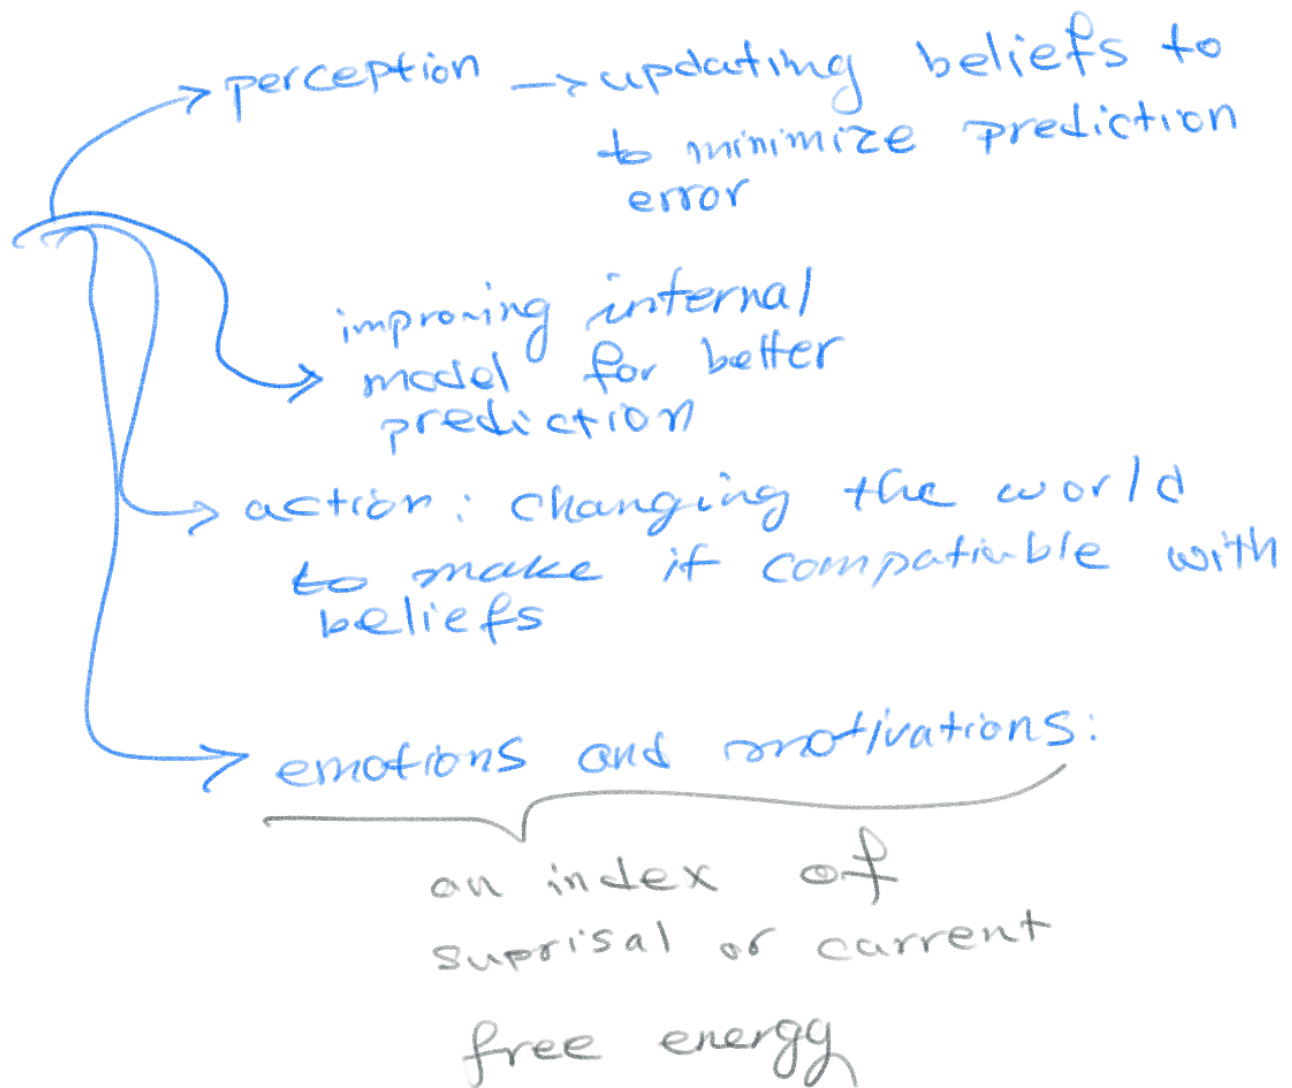 perception → updating beliefs to
to minimize prediction
error
improving internal
model for better
prediction
action: changing the world
to make it compatiable with
beliefs
emotions and motivations:
an index of
suprisal or current
free energy